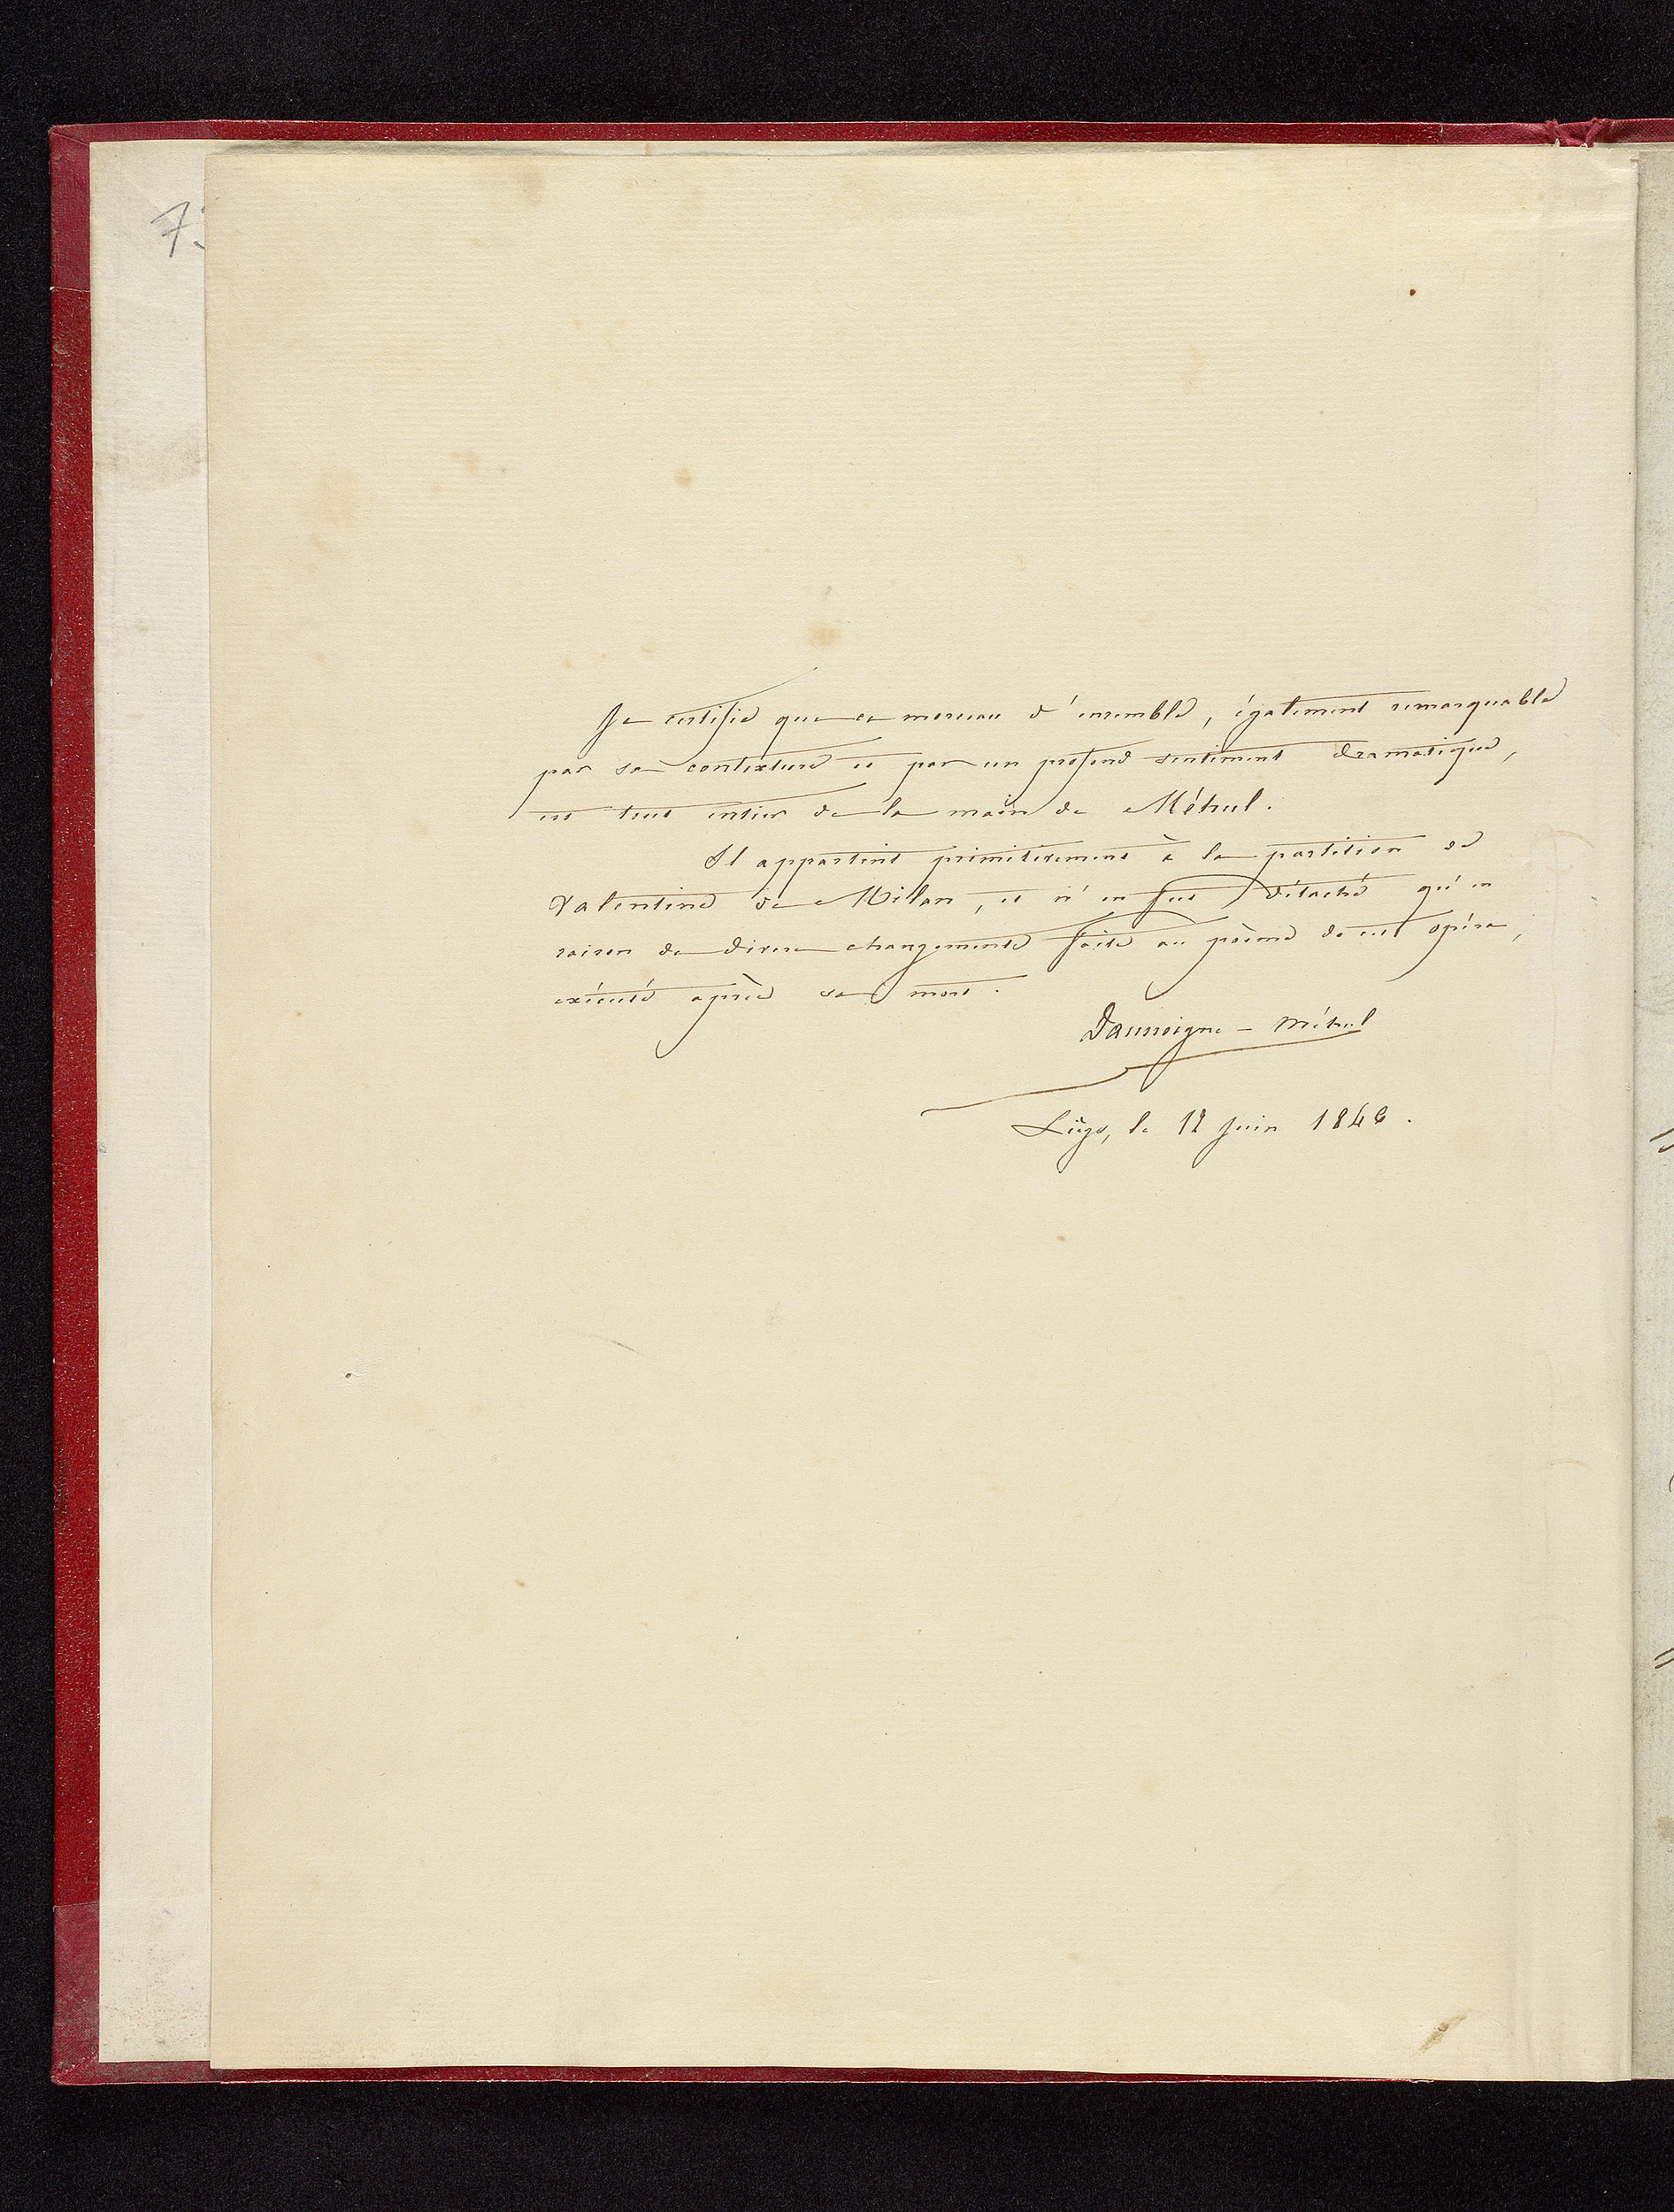 Je certifie que ce morceau d'ensemble, également remarquable
par sa contexture et par un profond sentiment dramatique,
est tout entier de la main de Méhul.
Il appartint primitivement à la partition de
Valentine de Milan, et n'en fut détaché qu'en
raison de divers changements faits au poème de cet opéra,
exécuté après sa mort.
Daussoigne - Méhul
Liège, le 12 juin 1846.